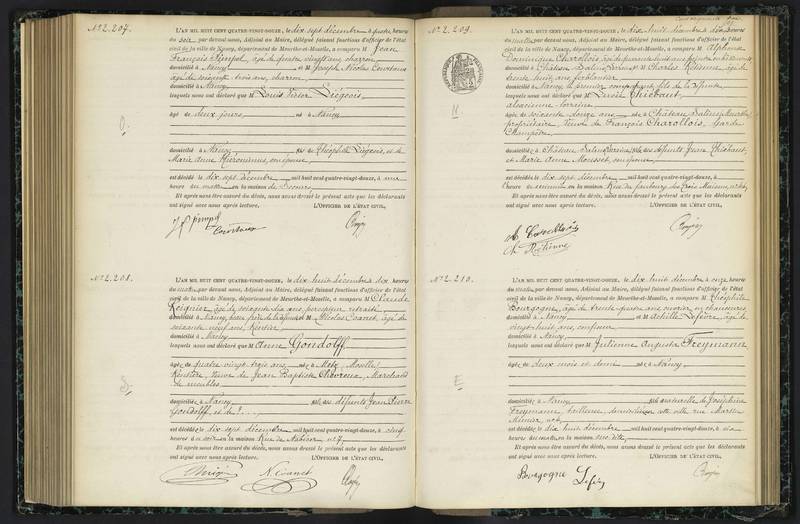 No 2.207.
L'AN MIL HUIT CENT QUATRE-VINGT-DOUZE, le dix sept décembre à quatre heures
du soir par devant nous, Adjoint au Maire, délégué faisant fonctions d'officier de l'état
civil de la ville de Nancy, département de Meurthe-et-Moselle, a comparu M Jean
François Pimpel, âgé de quatre vingts ans, charron
domicilié à Nancy et M Joseph Nicolas
âgé de soixante trois ans, charron
domicilié à Nancy
lesquels nous ont déclaré que M Louis Victor Liégeois
âgé de deux jours, né à Nancy
domicilié à Nancy, fils de Théophile Liégeois, et de
Marie Anne Hieronimus, son épouse
est décédé le dix sept décembre mil huit cent quatre-vingt-douze, à une
heure du matin en la maison de Secours
Et après nous être assuré du décès, nous avons dressé le présent acte que les déclarants
ont signé avec nous après lecture. L'OFFICIER DE L'ÉTAT CIVIL,
No 2.208.
L'AN MIL HUIT CENT QUATRE-VINGT-DOUZE, le dix huit décembre à dix heures
du matin, par devant nous, Adjoint au Maire, délégué faisant fonctions d'officier de l'état
civil de la ville de Nancy, département de Meurthe-et-Moselle, a comparu M Claude
âgé de soixante six ans, percepteur retraité
domicilié à Nancy et M Nicolas Coanet, âgé de
soixante neuf ans, Rentier
domicilié à Nancy
lesquels nous ont déclaré que M Anne Gondolff
âgée de quatre vingt trois ans, née à Metz (Moselle)
Rentière, veuve de Jean Baptiste Chevreux, Marchand
de meubles
domiciliée à Nancy, fille des défunts Jean Pierre
Gondolff, et de ? ...
est décédée le dix sept décembre mil huit cent quatre-vingt-douze, à cinq
heures du soir en la maison Rue de no 7
Et après nous être assuré du décès, nous avons dressé le présent acte que les déclarants
ont signé avec nous après lecture. L'OFFICIER DE L'ÉTAT CIVIL,
N. Coanet
No 2.209.
L'AN MIL HUIT CENT QUATRE-VINGT-DOUZE, le dix huit décembre à dix heures
du matin par devant nous, Adjoint au Maire, délégué faisant fonctions d'officier de l'état
civil de la ville de Nancy, département de Meurthe-et-Moselle, a comparu M Alphonse
Dominique Charollois, âgé de quarante huit ans
domicilié à Château Salins et M Charles âgé de
trente huit ans, ferblantier
domicilié à Nancy, le premier comparant fils de la défunte
lesquels nous ont déclaré que M Thiébaut,
alsacienne-lorraine
âgée de soixante douze ans née à Château Salins
propriétaire, veuve de François Charollois, Garde
Champêtre
domiciliée à Château Salins, fille des défunts Jean Thiébaut,
et Marie Anne Mousset, son épouse
est décédée le dix sept décembre mil huit cent quatre-vingt-douze, à
heure en la maison Rue du faubourg des Trois Maisons, no
Et après nous être assuré du décès, nous avons dressé le présent acte que les déclarants
ont signé avec nous après lecture. L'OFFICIER DE L'ÉTAT CIVIL,
No 2.210.
L'AN MIL HUIT CENT QUATRE-VINGT-DOUZE, le dix huit décembre à onze heures
du matin, par devant nous, Adjoint au Maire, délégué faisant fonctions d'officier de l'état
civil de la ville de Nancy, département de Meurthe-et-Moselle, a comparu M Théophile
Bourgogne, âgé de trente quatre ans, ouvrier en chaussures
domicilié à Nancy et M Achille Lefèvre, âgé de
vingt huit ans, confiseur
domicilié à Nancy
lesquels nous ont déclaré que M Julienne Augusta Freymann
âgée de deux mois et demi née à Nancy
domiciliée à Nancy, fille naturelle de Joséphine
Freymann, tailleuse, domiciliée en cette ville rue
est décédée le dix huit décembre mil huit cent quatre-vingt-douze, à six
heures du matin, en la maison sus dite
Et après nous être assuré du décès, nous avons dressé le présent acte que les déclarants
ont signé avec nous après lecture. L'OFFICIER DE L'ÉTAT CIVIL,
Bourgogne